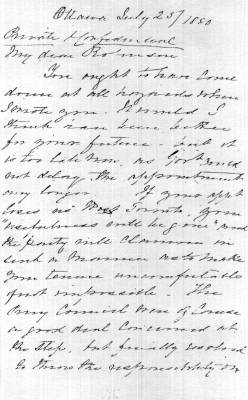 Ottawa July 23/1880
Private & Confidential
My dear Robinson
You ought to have come
down at all hazards when
I wrote you. It would I
think have been better
for your future. But it
is too late now, as Govt could
not delay the appointment
any longer. If your appt
loses us West Toronto, your
usefulness will be gone and
the party will clamour in
such a manner as to make
your tenure uncomfortable
if not impossible. The
Privy Council were of course
a good deal concerned at
the step, but finally resolved
to throw the responsibility on